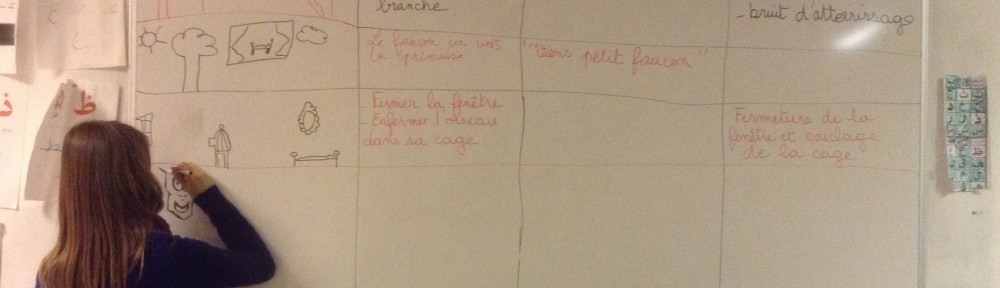 branche
- bruit d'atterrissage
Le faucon va vers
la princesse
"Viens petit faucon"
- Fermer la fenêtre
- Enfermer l'oiseau
dans sa cage
Fermeture de la
fenêtre et bouclage
de la cage
ظ